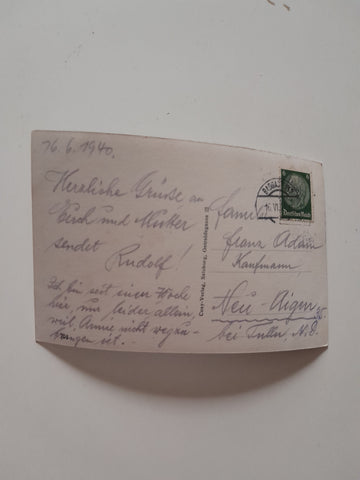 16.6.1940.
Herzliche Grüsse an
Euch und Mutter
sendet
Rudolf!
Ich bin seit einer Woche
hier, nur leider allein,
weil, Annie nicht wegzu-
bringen ist.-
Cosy-Verlag, Salzburg, Getreidegasse 22
Fam.
Franz Adam
Kaufmann
Neu-Aigen
bei Tulln, N.D.
Deutsches Reich